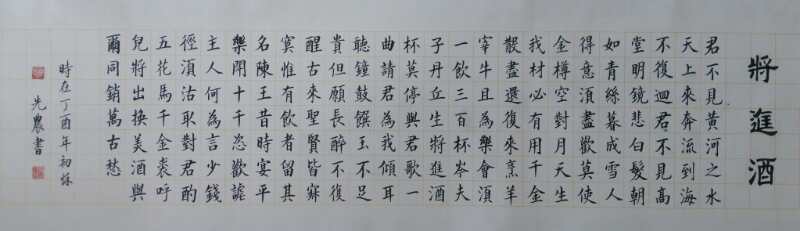 將進酒
君不見黃河之水
天上來奔流到海
不復迴君不見高
堂明鏡悲白髮朝
如青絲暮成雪人
得意須盡歡莫使
金樽空對月天生
我材必有用千金
散盡還復來烹羊
宰牛且為樂會須
一飲三百杯岑夫
子丹丘生將進酒
杯莫停與君歌一
曲請君為我傾耳
聽鐘鼓饌玉不足
貴但願長醉不復
醒古來聖賢皆寂
寞惟有飲者留其
名陳王昔時宴平
樂十千恣歡謔
主人何為言少錢
徑須沽取對君酌
五花馬千金裘呼
兒將出換美酒與
爾同銷萬古愁
時在丁酉年初秌
先農書